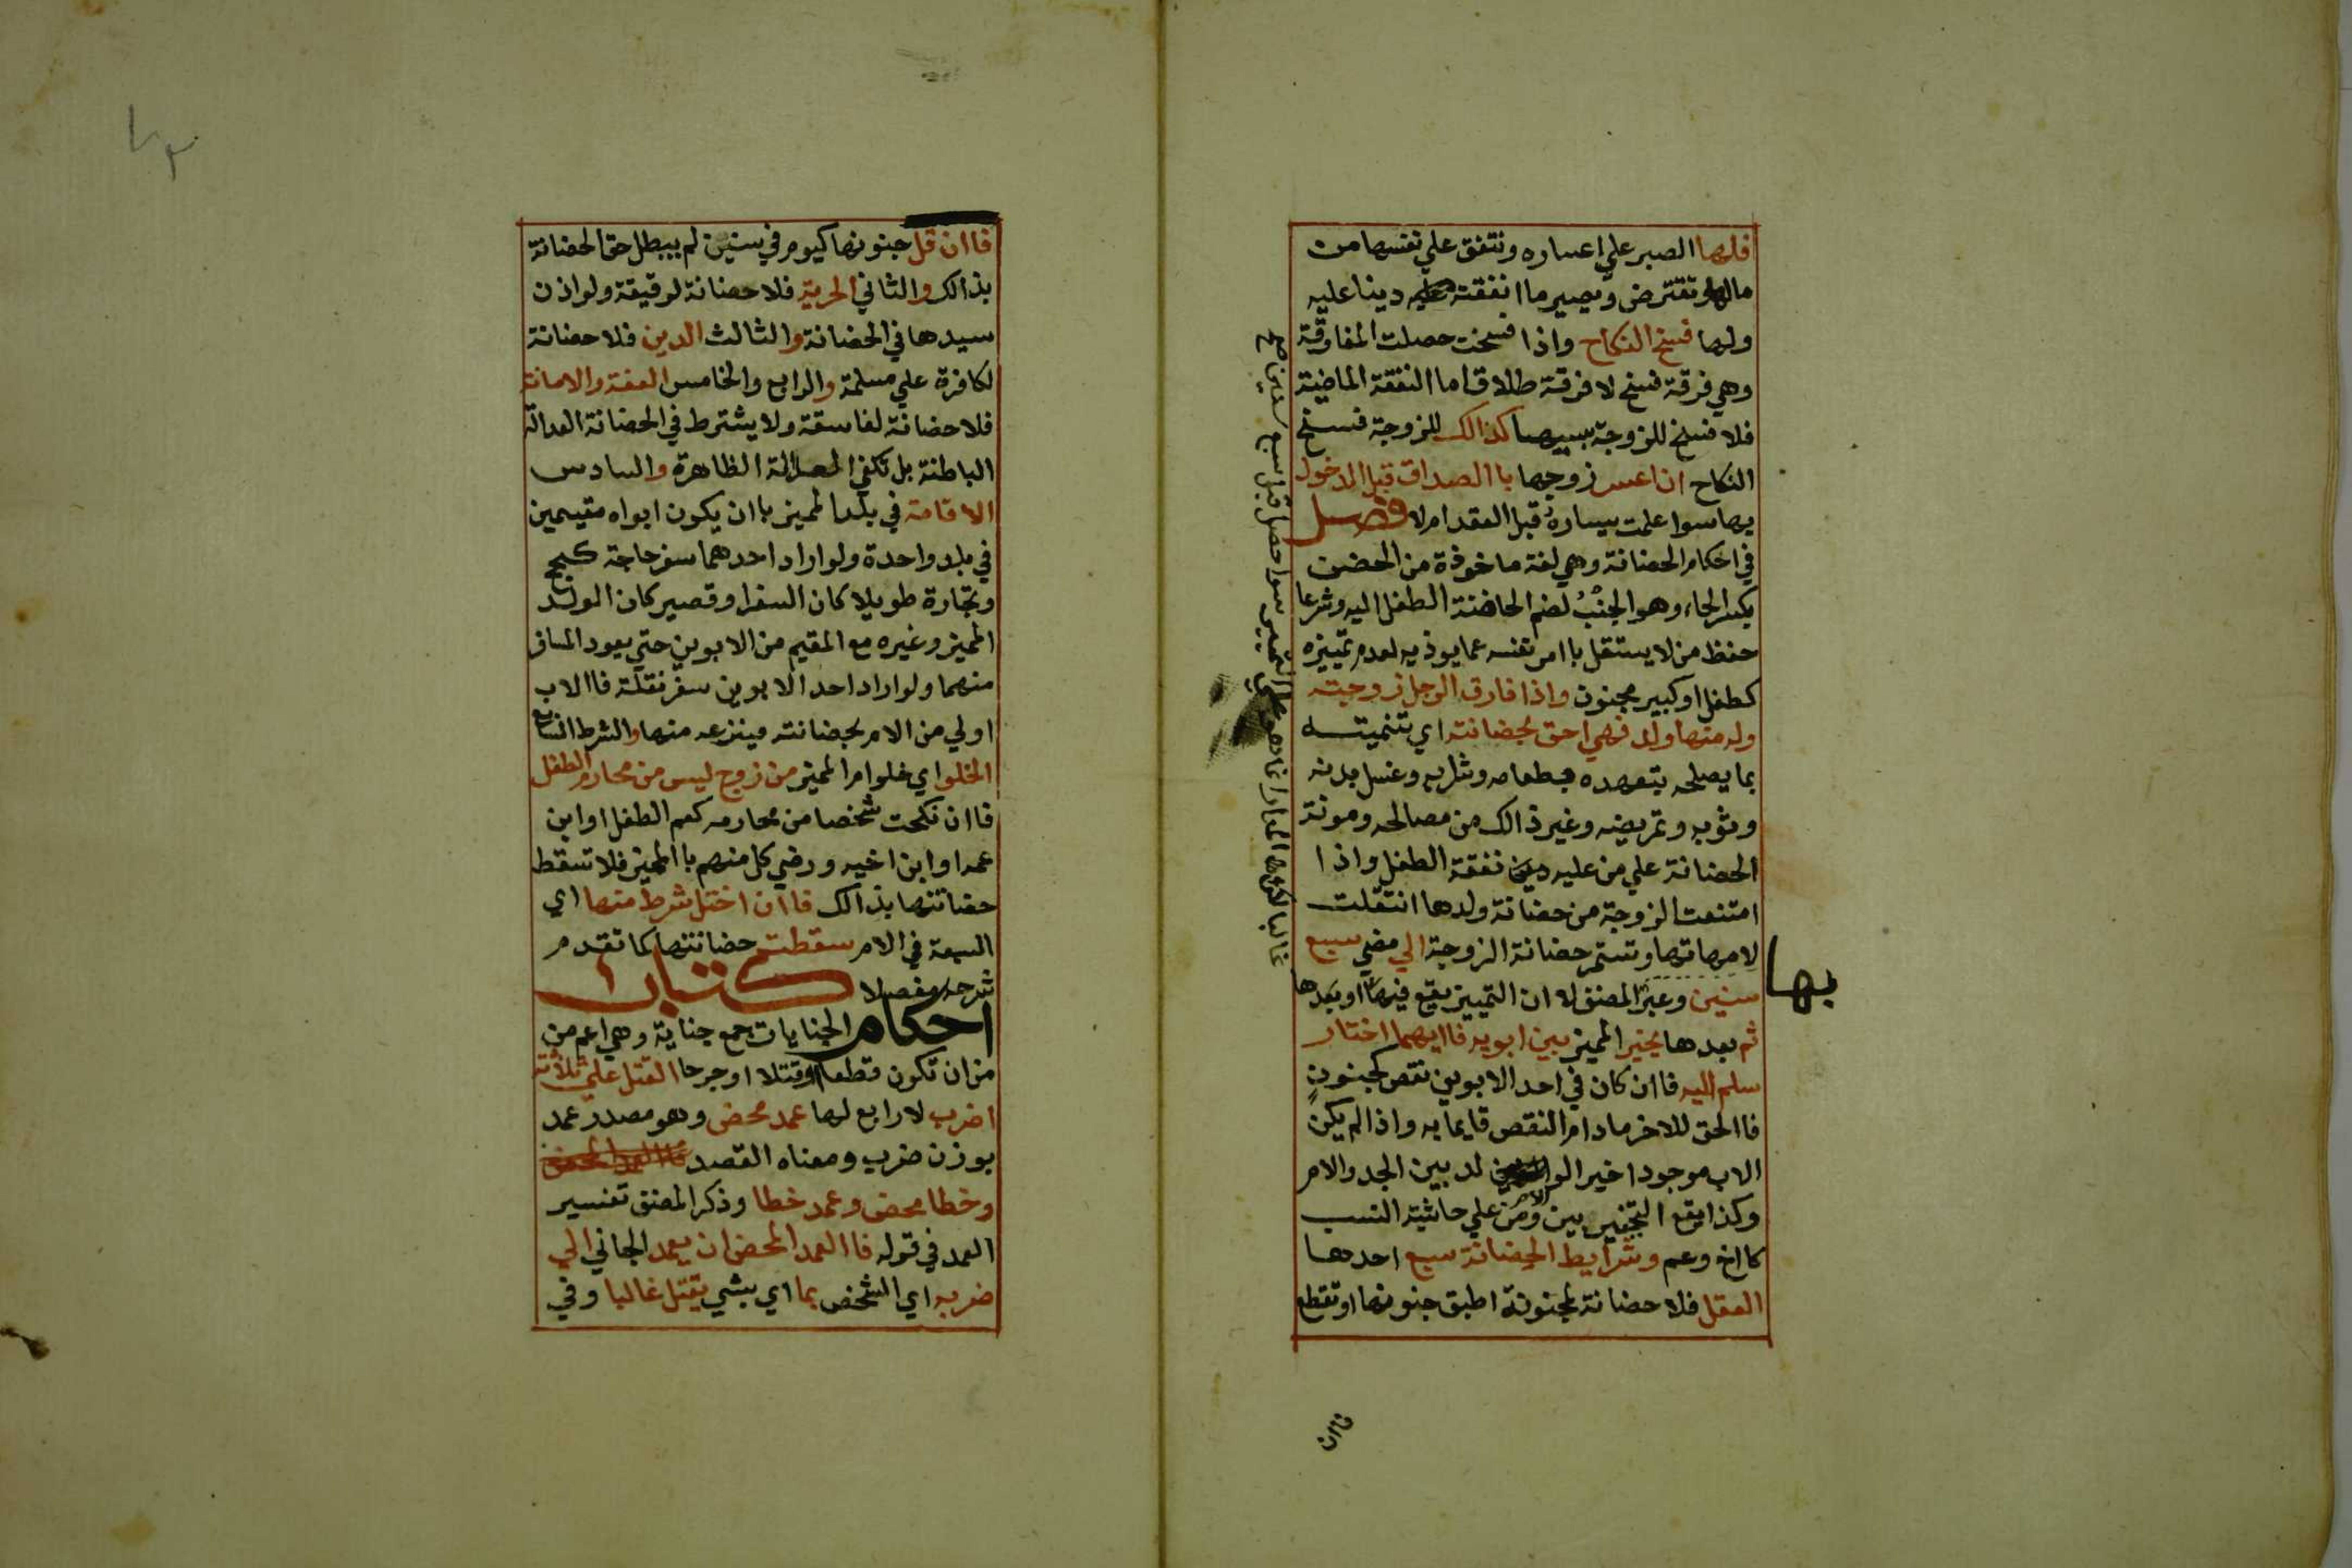 فلها الصبر علي اعساره وتنفق علي نفسها من
مالها وتقترض ويصير ما انفقته دينا عليه
ولها فسخ النكاح واذا فسخت حصلت المفارقة
وهي فرقة فسخ لا فرقة طلاق اما النفقة الماضية
فلا فسخ للزوجة بسببها كذالك للزوجة فسخ
النكاح ان اعسر زوجها باالصداق قبل الدخول
بها سوا علمت يساره قبل العقد ام لا فصل
في احكام الحضانة وهي لغة ماخوذة من الحضن
بكسر الحاء وهو الجنْبُ لضم الحاضنة الطفل اليه وشرعا
حفظ من لا يستقل باامر نفسه عما يوذيه لعدم تمييزه
كطفل او كبير مجنون واذا فارق الرجل زوجته
وله منها ولد فهي احق بحضانته اي بتنميته
بما يصلحه بتعهده بطعامه وشرابه وغسل بدنه
وثوبه وتمريضه وغير ذالك من مصالحه ومونة
الحضانة علي من عليه نفقة الطفل واذا
امتنعت الزوجة من حضانة ولدها انتقلت
لامهاتها وتستمر حضانة الزوجة الي مضي سبع
سنين وعبر المصنف لان التمييز يقع فيها او بعدها
بها
ثم بعدها يخير المميز بين ابويه فاايهما اختار
سلم اليه فاان كان في احد الابوين نقص كجنونٍ
فاالحق للاخر مادام النقص قايما به واذا لم يكن
الاب موجودا خير الولد بين الجد والام
وكذا يقع التخيير بين الام ومن علي حاشية النسب
كااخ وعم وشرايط الحضانة سبع احدها
العقل فلا حضانة لمجنونة اطبق جنونها او تقطع
فاان
فاان قل جنونها كيوم في سنين لم يبطل حق الحضانة
بذالك والثاني الحرية فلا حضانة لرقيقة ولو اذن
سيدها في الحضانة والثالث الدين فلا حضانة
لكافرة علي مسلمة والرابع والخامس العفة والامانة
فلا حضانة لفاسقة ولا يشترط في الحضانة العدالة
الباطنة بل تكفي العدالة الظاهرة والسادس
الاقامة في بلد المميز باان يكون ابواه مقيمين
في بلد واحدة ولو اراد احدهما سفر حاجة كحج
وتجارة طويلا كان السفر او قصير كان الولد
المميز وغيره مع المقيم من الابوين حتي يعود المسافر
منهما ولو اراد احد الابوين سفر نقلة فاالاب
اولي من الام بحضانته فينزعه منها والشرط السابع
الخلو اي خلو ام المميز من زوج ليس من محارم الطفل
فاان نكحت شخصا من محارمه كعم الطفل او ابن
عمه او ابن اخيه ورضي كل منهم باالمميز فلا تسقط
حضانتها بذالك فاان اختل شرط منها اي
السبعة في الام سقطت حضانتها كما تقدم
شرحه مفصلا كتاب
احكام الجنايات جمع جناية وهي اعم من
من ان تكون قطعا او قتلا او جرحا القتل علي ثلاثة
اضرب لا رابع لها عمد محض وهو مصدر عمد
بوزن ضرب ومعناه القصد
وخطا محض وعمد خطا وذكر المصنف تفسير
العمد في قوله فاالعمد المحض ان يعمد الجاني الي
ضربه اي الشخص بما اي بشي يقتل غالبا وفي